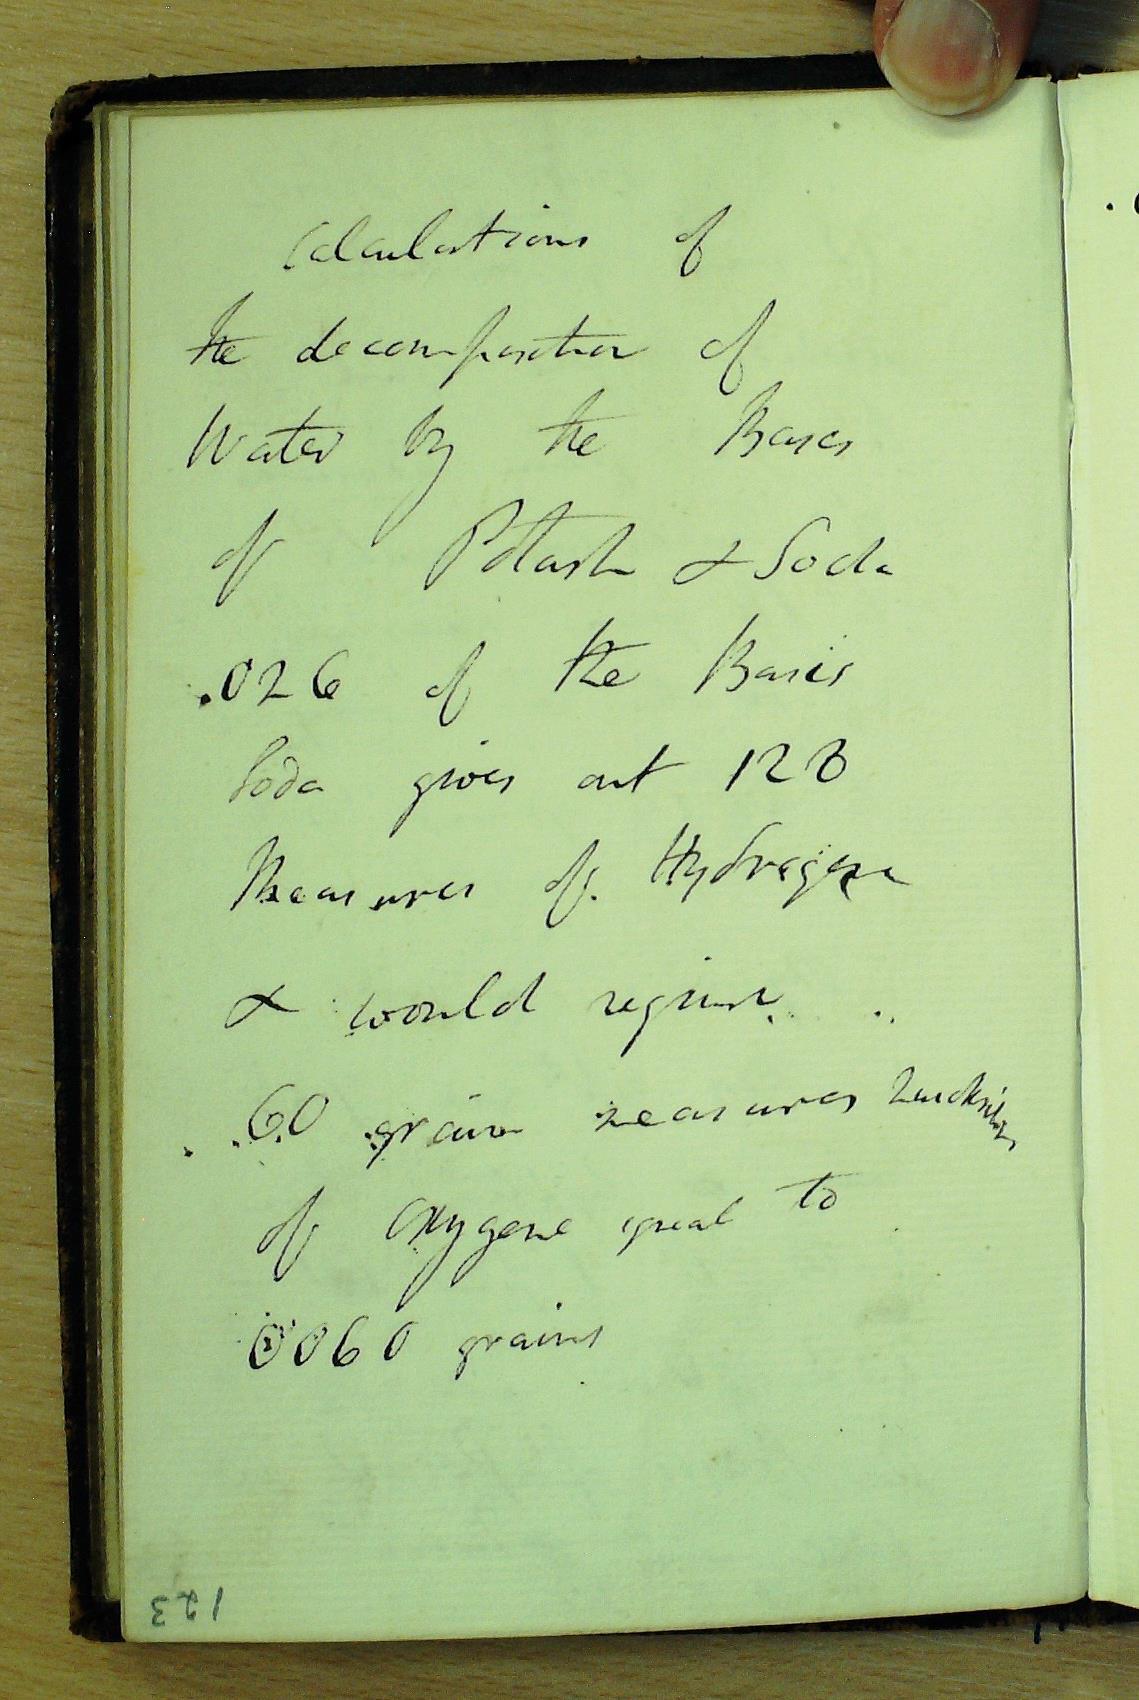 Calculations of
the decomposition of
Water by the Bases
of Potash & Soda
.026 of the Basis
Soda gives out 128
Measures of Hydrogene
& would require
.60 grain measures Quicksilver
of Oxygene equal to
0060 grains
123